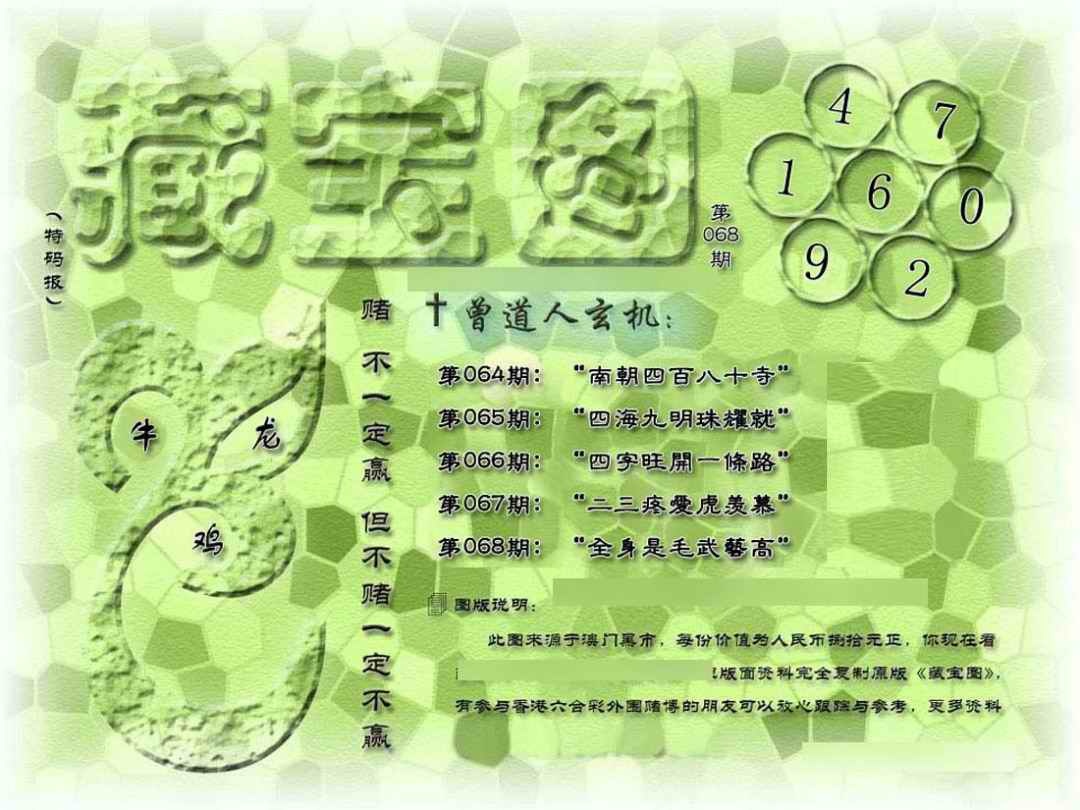 藏宝图
（特码报）
第
068
期
4
7
1
6
0
9
2
赌不一定赢 但不赌一定不赢
曾道人玄机：
第064期： “南朝四百八十寺”
第065期： “四海九明珠耀就”
第066期： “四字旺開一條路”
第067期： “二三疼愛虎羡慕”
第068期： “全身是毛武藝高”
牛
龙
鸡
图版说明：
此图来源于澳门黑市，每份价值为人民币捌拾元正，你现在看
版面资料完全复制原版《藏宝图》，
有参与香港六合彩外围赌博的朋友可以放心跟踪与参考，更多资料